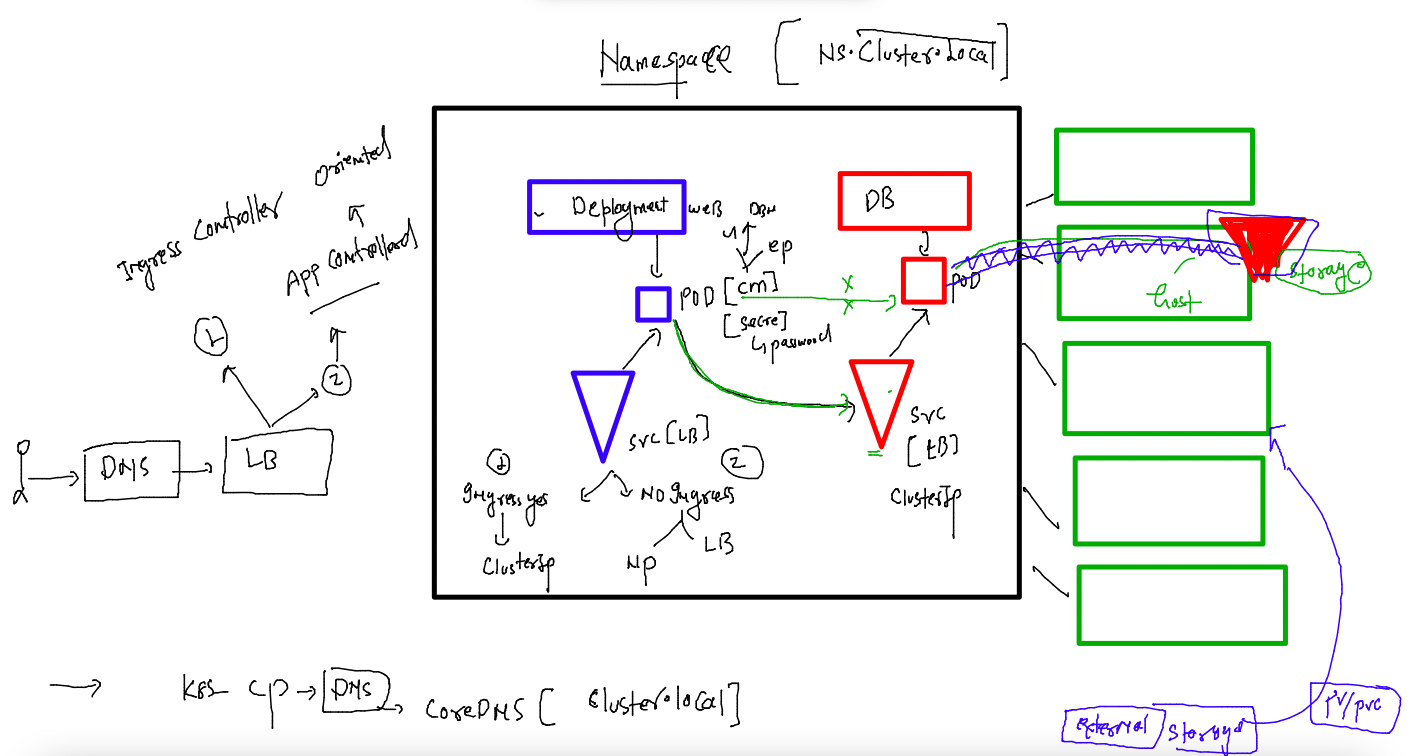 Namespace [ NS.Cluster.local]
Ingress Controller Oriented
App Controlled
1
2
DNS
LB
Deployment web
POD [cm]
ep
[secre]
password
DB
POD
host
storage
SVC [LB]
SVC
[LB]
ClusterIp
1
Ingress yes
ClusterIp
2
NO Ingress
NP
LB
K8S CP → DNS → CoreDNS [ Cluster.local]
External Storage
PV/pvc